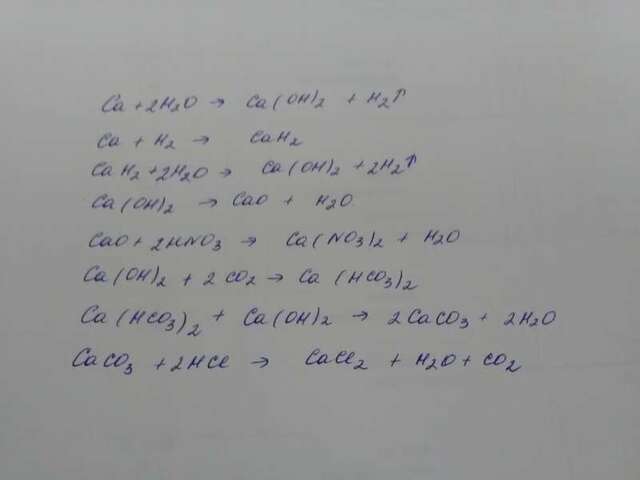 Ca + 2H₂O → Ca(OH)₂ + H₂↑
Ca + H₂ → CaH₂
CaH₂ + 2H₂O → Ca(OH)₂ + 2H₂↑
Ca(OH)₂ → CaO + H₂O
CaO + 2HNO₃ → Ca(NO₃)₂ + H₂O
Ca(OH)₂ + 2CO₂ → Ca(HCO₃)₂
Ca(HCO₃)₂ + Ca(OH)₂ → 2CaCO₃ + 2H₂O
CaCO₃ + 2HCl → CaCl₂ + H₂O + CO₂